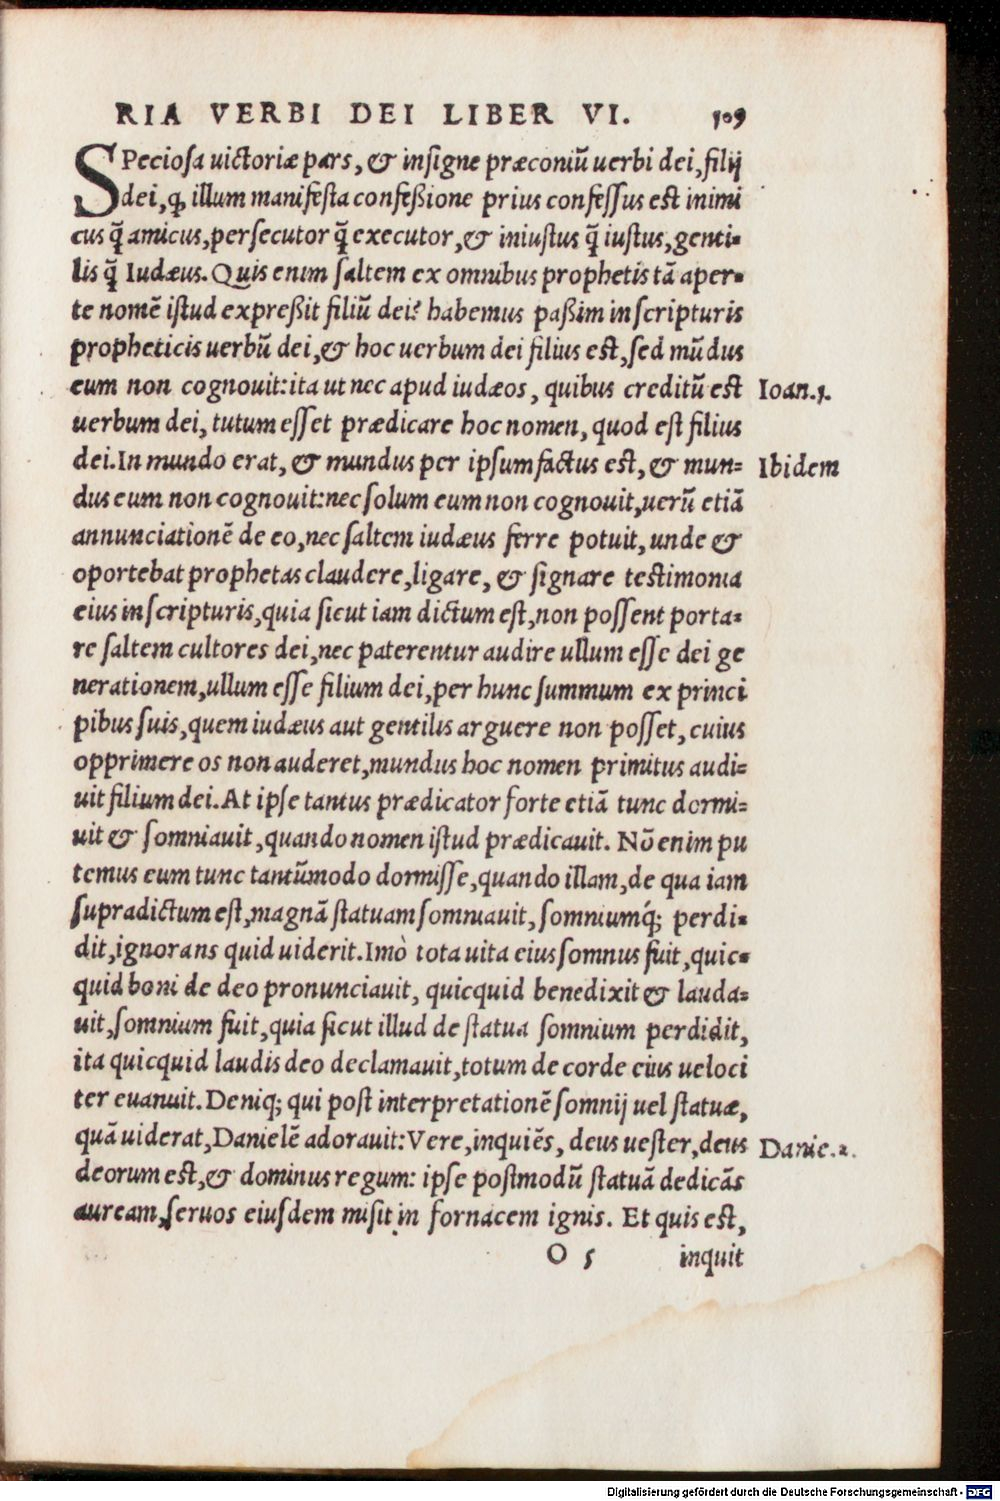 RIA VERBI DEI LIBER VI. 109
SPeciosa uictoriæ pars, & insigne præconiũ uerbi dei, filij
dei, ꝙ illum manifesta confeßione prius confessus est inimi
cus q̃ amicus, persecutor q̃ executor, & iniustus q̃ iustus, genti-
lis q̃ Iudæus. Quis enim saltem ex omnibus prophetis tã aper-
te nomẽ istud expreßit filiũ dei? habemus paßim in scripturis
propheticis uerbũ dei, & hoc uerbum dei filius est, sed mũdus
eum non cognouit: ita ut nec apud iudæos, quibus creditũ est
Ioan.1.
uerbum dei, tutum esset prædicare hoc nomen, quod est filius
dei. In mundo erat, & mundus per ipsum factus est, & mun-
Ibidem
dus eum non cognouit: nec solum eum non cognouit, uerũ etiã
annunciationẽ de eo, nec saltem iudæus ferre potuit, unde &
oportebat prophetas claudere, ligare, & signare testimonia
eius in scripturis, quia sicut iam dictum est, non possent porta-
re saltem cultores dei, nec paterentur audire ullum esse dei ge
nerationem, ullum esse filium dei, per hunc summum ex princi
pibus suis, quem iudæus aut gentilis arguere non posset, cuius
opprimere os non auderet, mundus hoc nomen primitus audi-
uit filium dei. At ipse tantus prædicator forte etiã tunc dormi-
uit & somniauit, quando nomen istud prædicauit. Nõ enim pu
temus eum tunc tantũmodo dormisse, quando illam, de qua iam
supradictum est, magnã statuam somniauit, somniumq́; perdi-
dit, ignorans quid uiderit. Imò tota uita eius somnus fuit, quic-
quid boni de deo pronunciauit, quicquid benedixit & lauda-
uit, somnium fuit, quia sicut illud de statua somnium perdidit,
ita quicquid laudis deo declamauit, totum de corde eius ueloci
ter euanuit. Deniq; qui post interpretationẽ somnij uel statuæ,
quã uiderat, Danielẽ adorauit: Vere, inquiẽs, deus uester, deus
Danie.2.
deorum est, & dominus regum: ipse postmodũ statuã dedicãs
auream, seruos eiusdem misit in fornacem ignis. Et quis est,
O 5 inquit
Digitalisierung gefördert durch die Deutsche Forschungsgemeinschaft - DFG